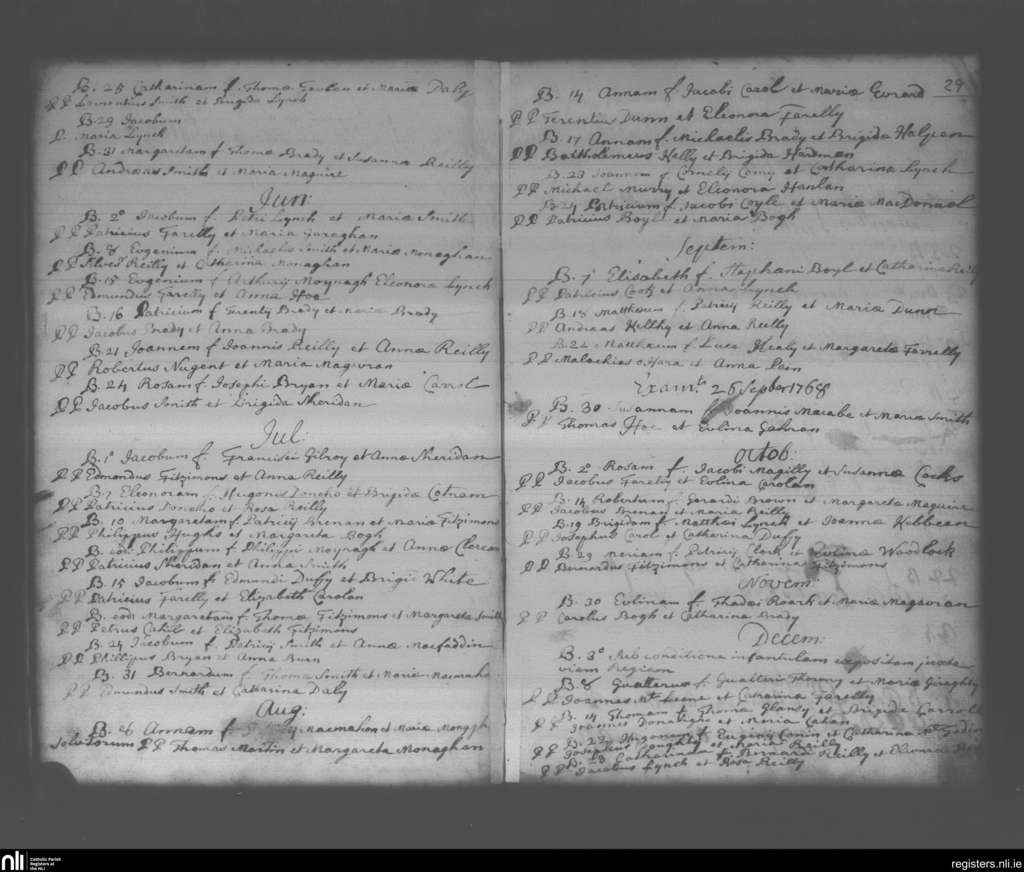 B. 25 Catharinam f. Thomæ et Mariæ Daly
PP Lamentius Smith et Brigida Lynch
B. 29 Jacobum
P. Maria Lynch
B. 31 Margaretam f. Thomæ Brady et Susanna Reilly
PP Andreas Smith et Maria Maguire
Jun:
B. 2° Jacobum f. Petri Lynch et Mariæ Smith
PP Patricius Farelly et Maria Garaghan
B. 8 Eugenium f. Michaelis Smith et Mariæ Monaghan
PP Reilly et Catharina Monaghan
B. 15 Eugenium f. Arthurij Moynagh Eleonora Lynch
PP Edmundus Farelly et Anna Hoe
B. 16 Patricium f. Terentij Brady et Mariæ Brady
PP Jacobus Brady et Anna Brady
B. 21 Joannem f. Joannis Reilly et Annæ Reilly
PP Robertus Nugent et Maria Magwran
B. 24 Rosam f. Josephi Bryan et Mariæ Carrol
PP Jacobus Smith et Brigida Sheridan
Jul:
B. 1° Jacobum f. Francisci Gilroy et Annæ Sheridan
PP Edmundus Fitzimons et Anna Reilly
B. 7 Eleonoram f. Hugonis Donoho et Brigida Cotnam
PP Patricius Donoho et Rosa Reilly
B. 10 Margaretam f. Patricij Brenan et Maria Fitzimons
PP Philippus Hughs et Margareta Bogh
B. eod: Philippum f. Philippi Moynagh et Annæ Clercan
PP Patricius Sheridan et Anna Smith
B. 15 Jacobum f. Edmundi Duffy et Brigid White
PP Patricius Farelly et Elizabeth Carolan
B. eod: Margaretam f. Thomæ Fitzimons et Margareta Smith
PP Petrus Cahil et Elizabeth Fitzimons
B. 24 Jacobum f. Patricij Smith et Annæ Macfaddin
PP Phillipus Bryan et Anna Burn
B. 31 Bernardum f. Thoma Smith et Maria Macmaho
PP Edmundus Smith et Catharina Daly
Aug:
B. 26 Annam f. Macmahon et Maria
Solutorum PP Thomas Martin et Margareta Monaghan
29
B. 14 Annam f. Jacobi Carol et Mariæ Evrard
PP Terentiu Dunn et Eleonora Farelly
B. 17 Annam f. Michaelis Brady et Brigida Halpean
PP Bartholomeus Kelly et Brigida Hardman
B. 23 Joannem f. Cornely Comy et Catharina Lynch
PP Michael Murry et Eleonora Hanlan
B. 24 Patricium f. Jacobi Coyle et Mariæ MacDonnol
PP Patricius Boyle et Maria Bogh
Septem:
B. 7 Elisabeth f. Stephani Boyl et Catharina Reily
PP Patricius Cook et Anna Lynch
B. 18 Matthæum f. Patricij Reilly et Maria Dunn
PP Andreas Kelthy et Anna Reilly
B. 22 Matthæum f. Luca Healy et Margareta Farrelly
PP Malachias oHara et Anna Pein
26 Septer 1768
B. 30 Susannam f. Joannis Macabe et Maria Smith
PP Thomas Hoe et Evlina Gahran
Octob:
B. 2° Rosam f. Jacobi Magilly et Susannæ Cocks
PP Jacobus Farelly et Evlina Carolan
B. 14 Robertum f. Gerardi Brown et Margareta Maguire
PP Jacobus Brenan et Maria Reilly
B. 19 Brigidam f. Matthæi Lynch et Joanna Kibbean
PP Josephus Carol et Catharina Duffy
B. 29 Mariam f. Patricij Clark Woodlock
PP Bernardus Fitzimons et Catharina Fitzimons
Novem:
B. 30 Evlinam f. Thadæi Roark et Mariæ Magwran
PP Carolus Bogh et Catharina Brady
Decem:
B. 3° Sub conditione infantulam expositam juxta
viam Regiam
B. 8 Gualterus f. Gualteri Thormy et Mariæ Giraghty
PP Joannes Keene et Catharina Farelly
B. 14 Thomam f. Thomæ Glansy et Brigida Carroll
PP Joannes Donaheghe et Maria Cahan
B. 22 Hugonem f. Eugenij Conin et Catharina
PP Josephus Doughty et Maria Reilly
B. 23 Catharinam f. Bernardi Reilly et
PP Jacobus Lynch et Rosa Reilly
nli
Catholic Parish
Registers at
the NLI
registers.nli.ie